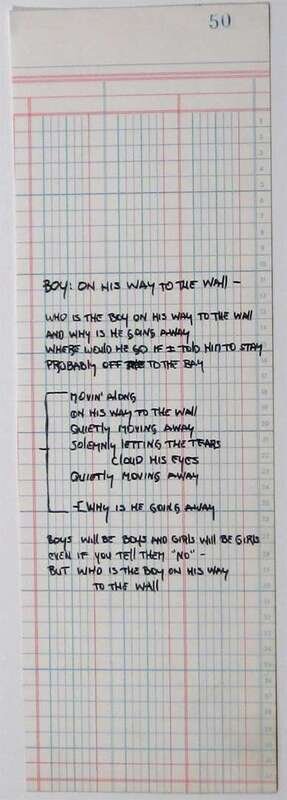 50
BOY: ON HIS WAY TO THE WALL -
WHO IS THE BOY ON HIS WAY TO THE WALL
AND WHY IS HE GOING AWAY
WHERE WOULD HE GO IF I TOLD HIM TO STAY
PROBABLY OFF TO THE BAY
MOVIN' ALONG
ON HIS WAY TO THE WALL
QUIETLY MOVING AWAY
SOLEMNLY LETTING THE TEARS
CLOUD HIS EYES
QUIETLY MOVING AWAY
WHY IS HE GOING AWAY
BOYS WILL BE BOYS AND GIRLS WILL BE GIRLS
EVEN IF YOU TELL THEM "NO" -
BUT WHO IS THE BOY ON HIS WAY
TO THE WALL